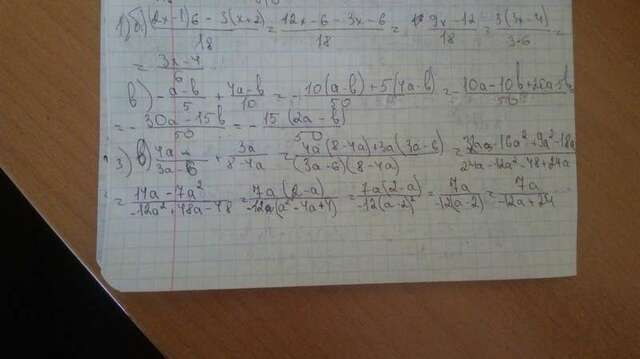 1) б) (2x-1)6 - 3(x+2)/18 = 12x-6-3x-6/18 = 9x-12/18 = 3(3x-4)/3·6 =
= 3x-4/6
в) - a-b/5 + 4a-b/10 = - 10(a-b)+5(4a-b)/50 = - 10a-10b+20a-5b/50 =
= - 30a-15b/50 = - 15(2a-b)/50
3) в) 4a/3a-6 + 3a/8-4a = 4a(8-4a)+3a(3a-6)/(3a-6)(8-4a) = 32a-16a²+9a²-18a/24a-12a²-48+24a
= 14a-7a²/-12a²+48a-48 = 7a(2-a)/-12(a²-4a+4) = 7a(2-a)/-12(a-2)² = 7a/-12(a-2) = 7a/-12a+24